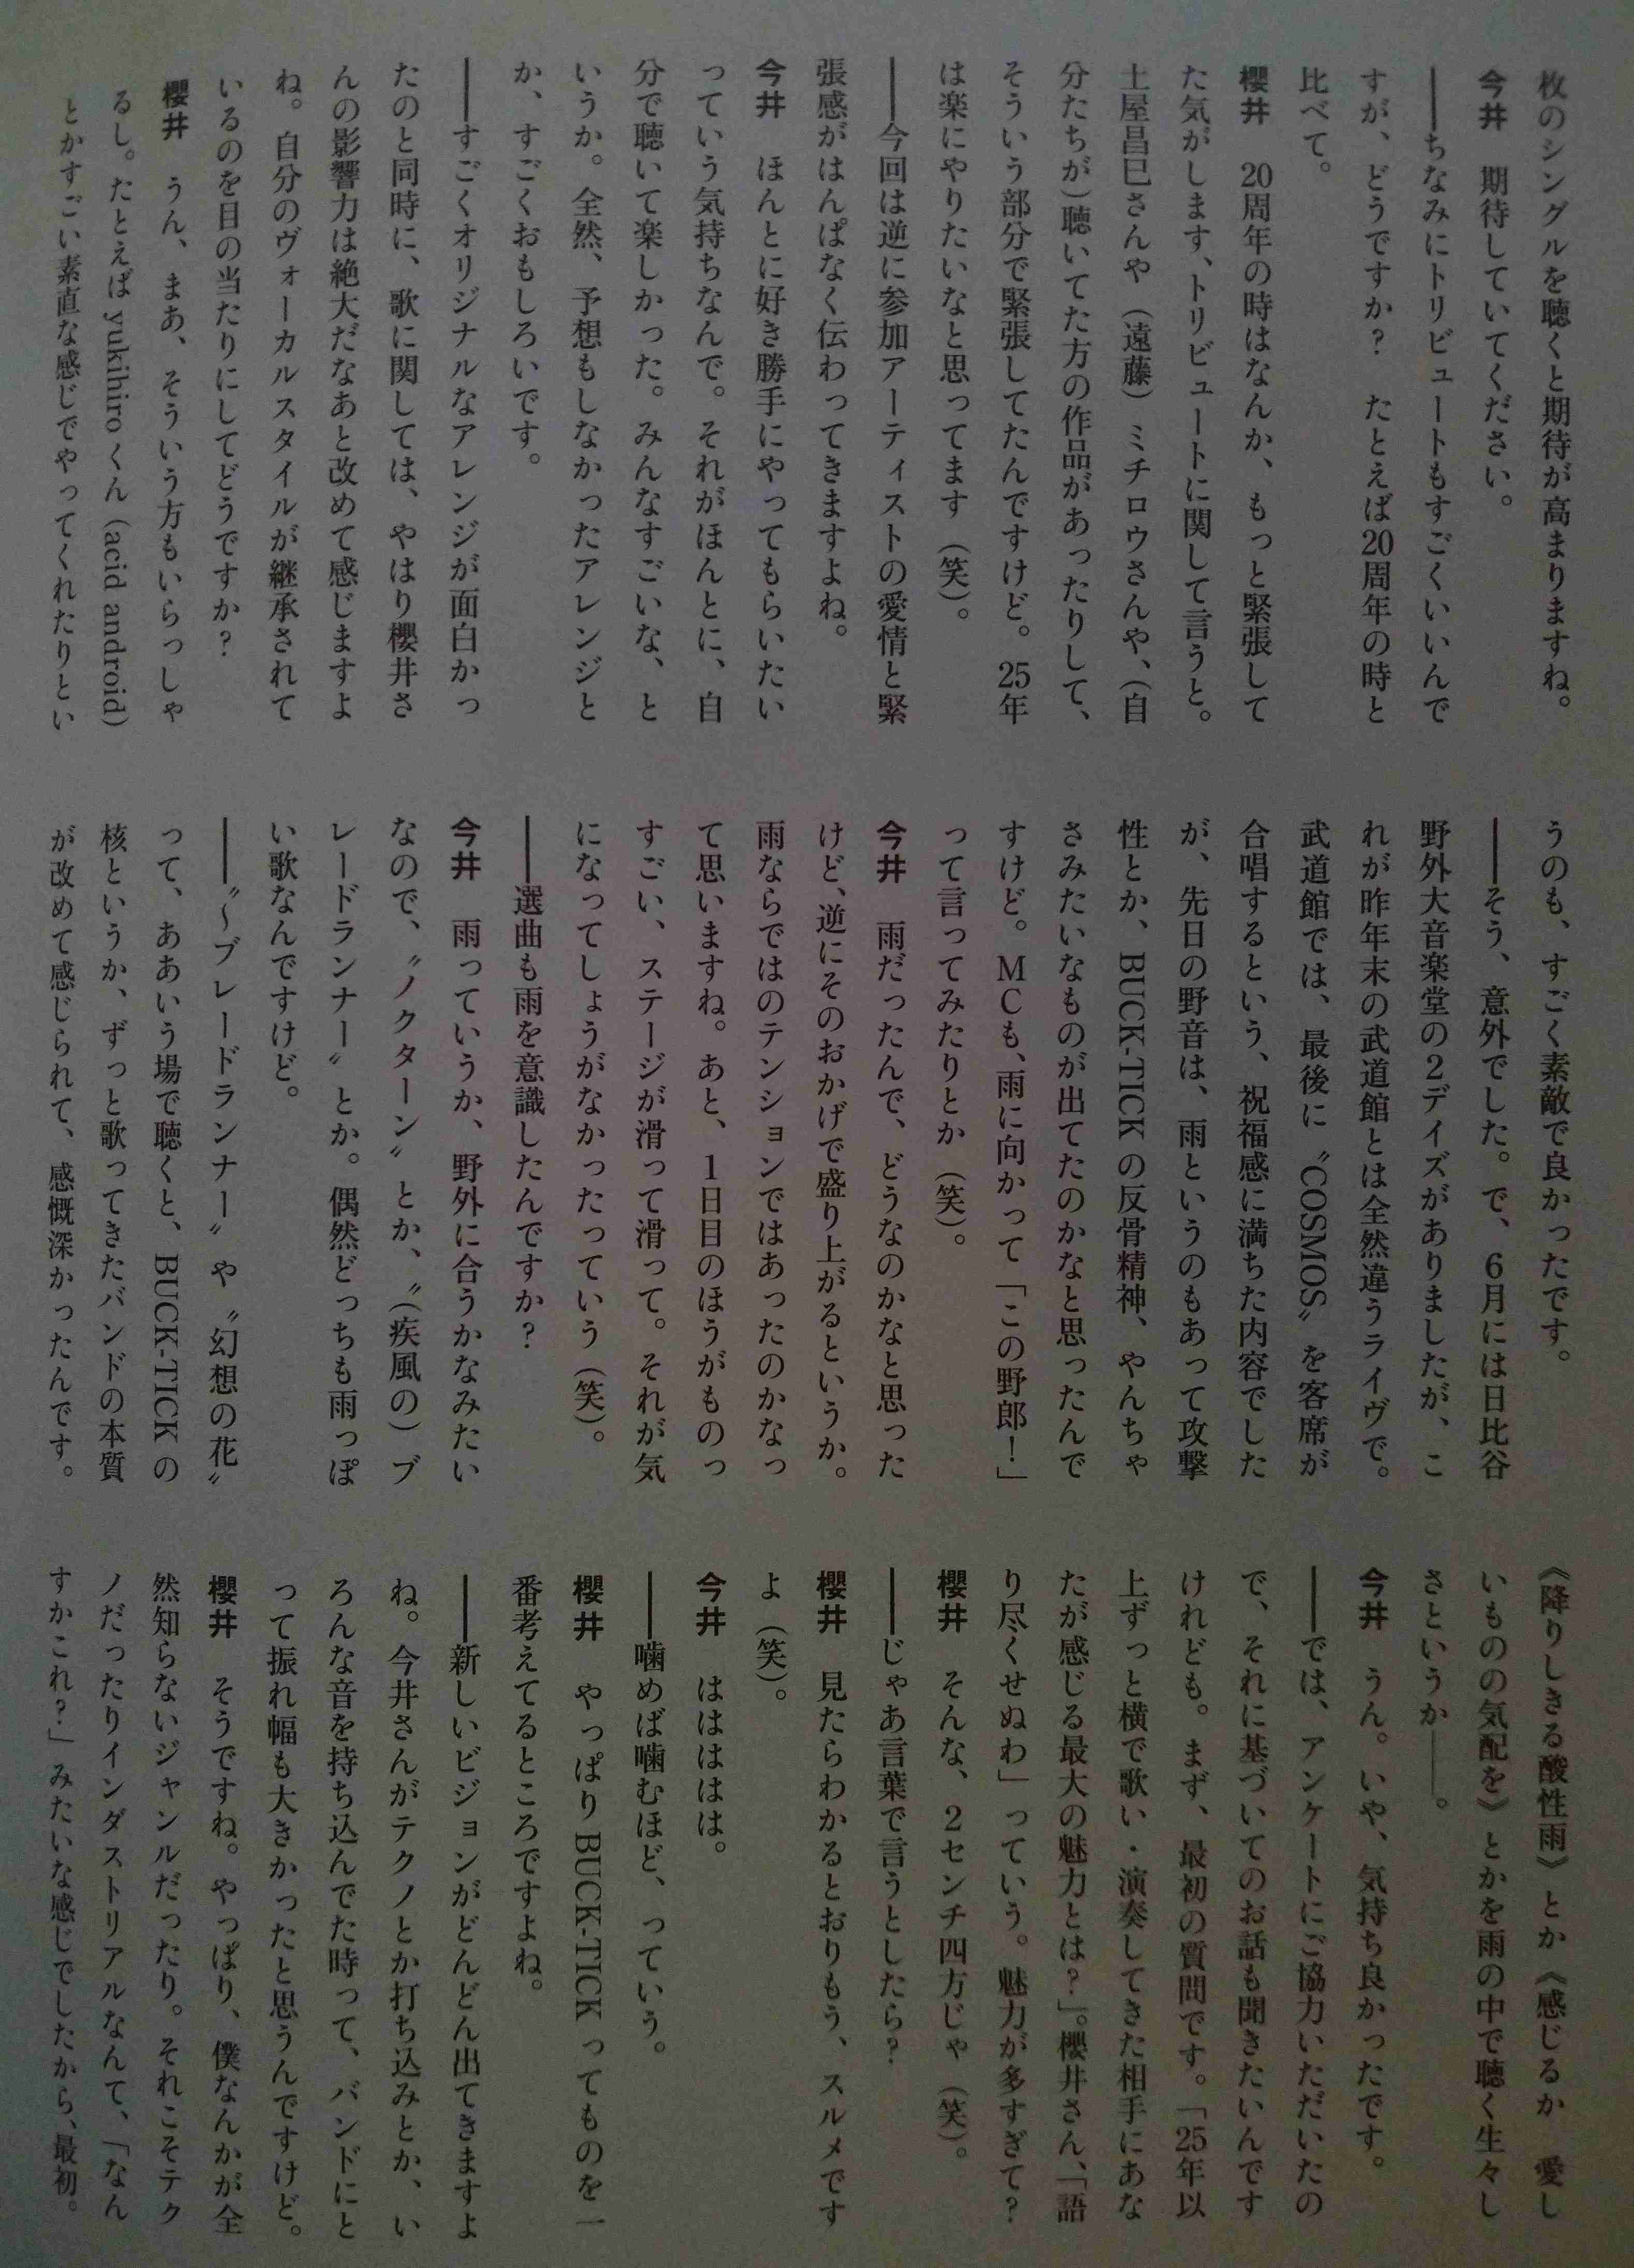 枚のシングルを聴くと期待が高まりますね。
今井　期待していてください。
――ちなみにトリビュートもすごくいいんで
すが、どうですか？　たとえば20周年の時と
比べて。
櫻井　20周年の時はなんか、もっと緊張して
た気がします、トリビュートに関して言うと。
土屋昌巳さんや（遠藤）ミチロウさんや、（自
分たちが）聴いてた方の作品があったりして、
そういう部分で緊張してたんですけど。25年
は楽にやりたいなと思ってます（笑）。
――今回は逆に参加アーティストの愛情と緊
張感がはんぱなく伝わってきますよね。
今井　ほんとに好き勝手にやってもらいたい
っていう気持ちなんで。それがほんとに、自
分で聴いて楽しかった。みんなすごいな、と
いうか。全然、予想もしなかったアレンジと
か、すごくおもしろいです。
――すごくオリジナルなアレンジが面白かっ
たのと同時に、歌に関しては、やはり櫻井さ
んの影響力は絶大だなあと改めて感じますよ
ね。自分のヴォーカルスタイルが継承されて
いるのを目の当たりにしてどうですか？
櫻井　うん、まあ、そういう方もいらっしゃ
るし。たとえばyukihiroくん（acid android）
とかすごい素直な感じでやってくれたりとい
うのも、すごく素敵で良かったです。
――そう、意外でした。で、6月には日比谷
野外大音楽堂の2デイズがありましたが、こ
れが昨年末の武道館とは全然違うライヴで。
武道館では、最後に〝COSMOS〟を客席が
合唱するという、祝福感に満ちた内容でした
が、先日の野音は、雨というのもあって攻撃
性とか、BUCK-TICKの反骨精神、やんちゃ
さみたいなものが出てたのかなと思ったんで
すけど。MCも、雨に向かって「この野郎！」
って言ってみたりとか（笑）。
今井　雨だったんで、どうなのかなと思った
けど、逆にそのおかげで盛り上がるというか。
雨ならではのテンションではあったのかなっ
て思いますね。あと、1日目のほうがものっ
すごい、ステージが滑って滑って。それが気
になってしょうがなかったっていう（笑）。
――選曲も雨を意識したんですか？
今井　雨っていうか、野外に合うかなみたい
なので、〝ノクターン〟とか、〝（疾風の）ブ
レードランナー〟とか。偶然どっちも雨っぽ
い歌なんですけど。
――〝～ブレードランナー〟や〝幻想の花〟
って、ああいう場で聴くと、BUCK-TICKの
核というか、ずっと歌ってきたバンドの本質
が改めて感じられて、感慨深かったんです。
《降りしきる酸性雨》とか《感じるか　愛し
いものの気配を》とかを雨の中で聴く生々し
さというか――。
今井　うん。いや、気持ち良かったです。
――では、アンケートにご協力いただいたの
で、それに基づいてのお話も聞きたいんです
けれども。まず、最初の質問です。「25年以
上ずっと横で歌い・演奏してきた相手にあな
たが感じる最大の魅力とは？」。櫻井さん、「語
り尽くせぬわ」っていう。魅力が多すぎて？
櫻井　そんな、2センチ四方じゃ（笑）。
――じゃあ言葉で言うとしたら？
櫻井　見たらわかるとおりもう、スルメです
よ（笑）。
今井　ははははは。
――噛めば噛むほど、っていう。
櫻井　やっぱりBUCK-TICKってものを一
番考えてるところですよね。
――新しいビジョンがどんどん出てきますよ
ね。今井さんがテクノとか打ち込みとか、い
ろんな音を持ち込んでた時って、バンドにと
って振れ幅も大きかったと思うんですけど。
櫻井　そうですね。やっぱり、僕なんかが全
然知らないジャンルだったり。それこそテク
ノだったりインダストリアルなんて、「なん
すかこれ？」みたいな感じでしたから、最初。